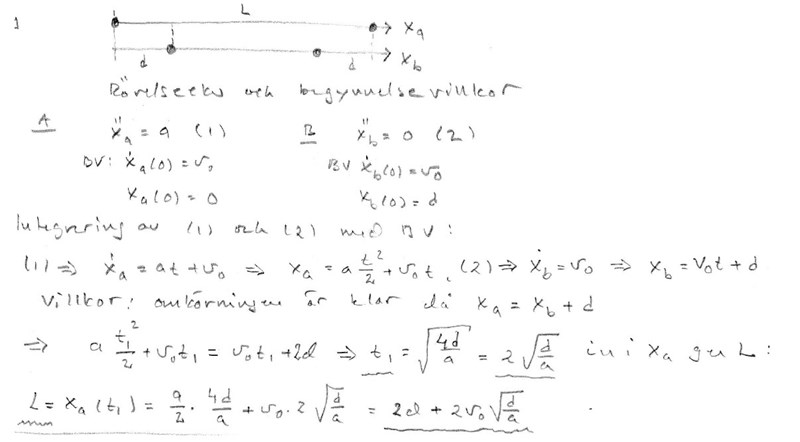 1
L
x_a
d
d
x_b
Rörelseekv och begynnelsevillkor
A ẍ_a = a (1) B ẍ_b = 0 (2)
BV: ẋ_a(0) = v₀ BV ẋ_b(0) = v₀
x_a(0) = 0 x_b(0) = d
Integrering av (1) och (2) med BV:
(1) ⇒ ẋ_a = at + v₀ ⇒ x_a = a t²/2 + v₀t, (2) ⇒ ẋ_b = v₀ ⇒ x_b = v₀t + d
Villkor: omkörningen är klar då x_a = x_b + d
⇒ a t₁²/2 + v₀t₁ = v₀t₁ + 2d ⇒ t₁ = √(4d/a) = 2√(d/a) in i x_a ger L:
L = x_a(t₁) = a/2 · 4d/a + v₀ · 2√(d/a) = 2d + 2v₀√(d/a) .